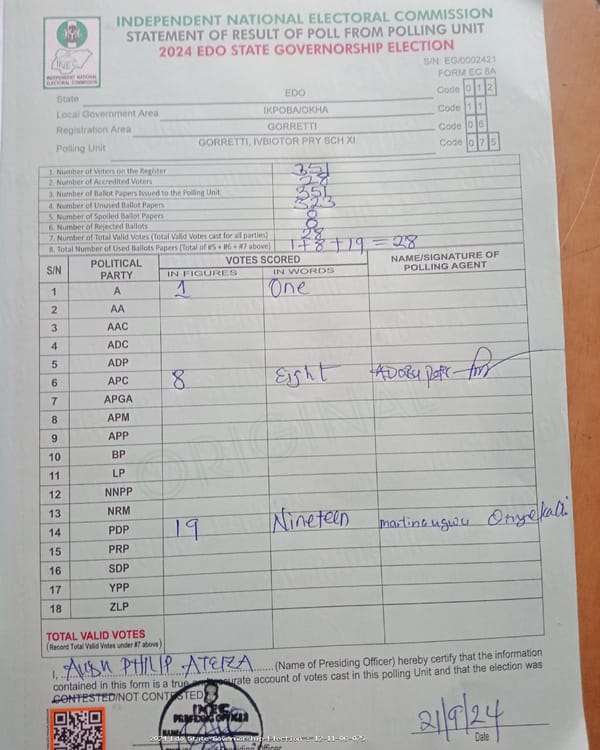 INDEPENDENT NATIONAL ELECTORAL COMMISSION
STATEMENT OF RESULT OF POLL FROM POLLING UNIT
2024 EDO STATE GOVERNORSHIP ELECTION
S/N: EG/0002421
FORM EC 8A
INEC
INDEPENDENT NATIONAL
ELECTORAL COMMISSION
State EDO Code 0 1 2
Local Government Area IKPOBA/OKHA Code 1 1
Registration Area GORRETTI Code 0 6
Polling Unit GORRETTI, IVBIOTOR PRY SCH XI Code 0 7 5
1. Number of Voters on the Register 351
2. Number of Accredited Voters 28
3. Number of Ballot Papers Issued to the Polling Unit 351
4. Number of Unused Ballot Papers 323
5. Number of Spoiled Ballot Papers 0
6. Number of Rejected Ballots 0
7. Number of Total Valid Votes (Total Valid Votes cast for all parties) 28
8. Total Number of Used Ballots Papers (Total of #5 + #6 + #7 above) 1+8+19=28
S/N POLITICAL PARTY VOTES SCORED NAME/SIGNATURE OF POLLING AGENT
IN FIGURES IN WORDS
1 A 1 One
2 AA
3 AAC
4 ADC
5 ADP
6 APC 8 Eight
7 APGA
8 APM
9 APP
10 BP
11 LP
12 NNPP
13 NRM
14 PDP 19 Nineteen
15 PRP
16 SDP
17 YPP
18 ZLP
ORIGINAL
TOTAL VALID VOTES
(Record Total Valid Votes under #7 above)
I, PHILIP (Name of Presiding Officer) hereby certify that the information
contained in this form is a true accurate account of votes cast in this polling Unit and that the election was
CONTESTED/NOT CONTESTED
INEC
PRESIDING OFFICER
21/9/24
Date
2024 Edo State Governorship Election - 12-11-06-075